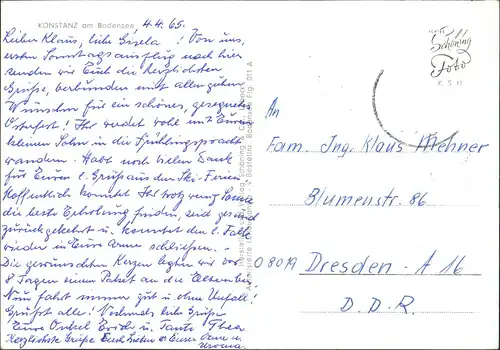 KONSTANZ am Bodensee
4.4.65.
Lieber Klaus, liebe Gisela! Von uns,
ersten Sonntagsausflug nach hier
senden wir Euch die herzlichsten
Grüße, verbunden mit allen guten
Wünschen für ein schönes, gesegnetes
Osterfest! Ihr werdet wohl mit Eurem
kleinen Sohn in die Frühlingspracht
wandern. Habt noch vielen Dank
für Euren l. Gruß aus den Ski-Ferien
Hoffentlich konntet Ihr trotz wenig Sonne
die beste Erholung finden, seid gesund
zurückgekehrt u. konntet den l. Falk
wieder in Eure Arme schließen.
Die gewünschten Kerzen legten wir vor
8 Tagen einem Paket an die Eltern bei.
Nun fahrt immer gut u. ohne Unfall!
Grüßt alle! Nochmals liebe Grüße
Eure Onkel Erich u. Tante Thea
Herzlichste Grüße Euch Lieben v. Eurer Oma u.
Uroma.
Schöning
Foto
An
Fam. Ing. Klaus Mehner
Blumenstr. 86
8019 Dresden - A 16
D. D. R.